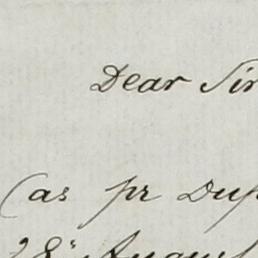 Dear Sir
(as pr Dup
28th August